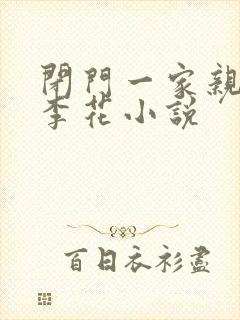 閉門一家親
李花小説
百日衣衫盡